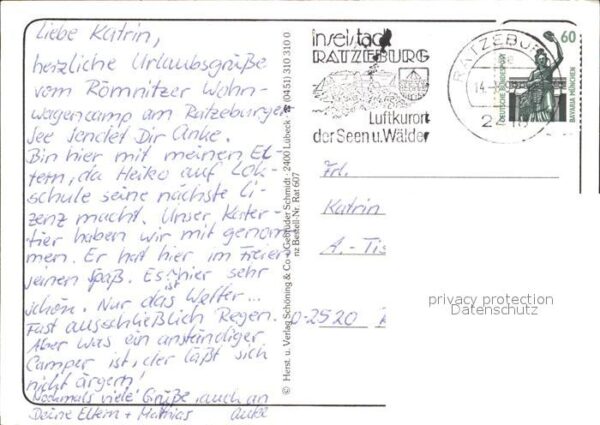 Liebe Katrin,
herzliche Urlaubsgrüße
vom Römnitzer Wohn-
wagencamp am Ratzeburger
See sendet Dir Anke.
Bin hier mit meinen El-
tern, da Heiko auf Lok-
schule seine nächste Li-
zenz macht. Unser Kater-
tier haben wir mit genom-
men. Er hat hier im Freien
seinen Spaß. Es ist hier sehr
schön. Nur das Wetter...
Fast ausschließlich Regen.
Aber was ein anständiger
Camper ist, der läßt sich
nicht ärgern!
Nochmals viele Grüße, auch an
Deine Eltern + Matthias Anke
© Herst. u. Verlag Schöning & Co + Gebrüder Schmidt · 2400 Lübeck · ☎ (0451) 310 310 0
nz Bestell-Nr. Rat 607
inselstadt
RATZEBURG
Luftkurort
der Seen u. Wälder
RATZEBURG
60
DEUTSCHE BUNDESPOST
BAVARIA MÜNCHEN
Frl.
Katrin
A.-Tis
O-2520
privacy protection
Datenschutz